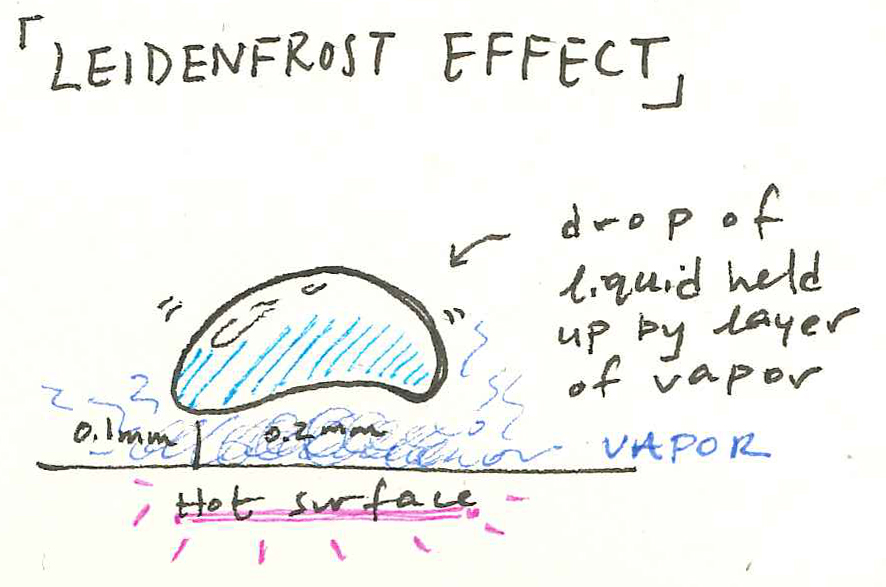 「LEIDENFROST EFFECT」
drop of
liquid held
up by layer
of vapor
0.1mm
0.2mm
VAPOR
Hot surface